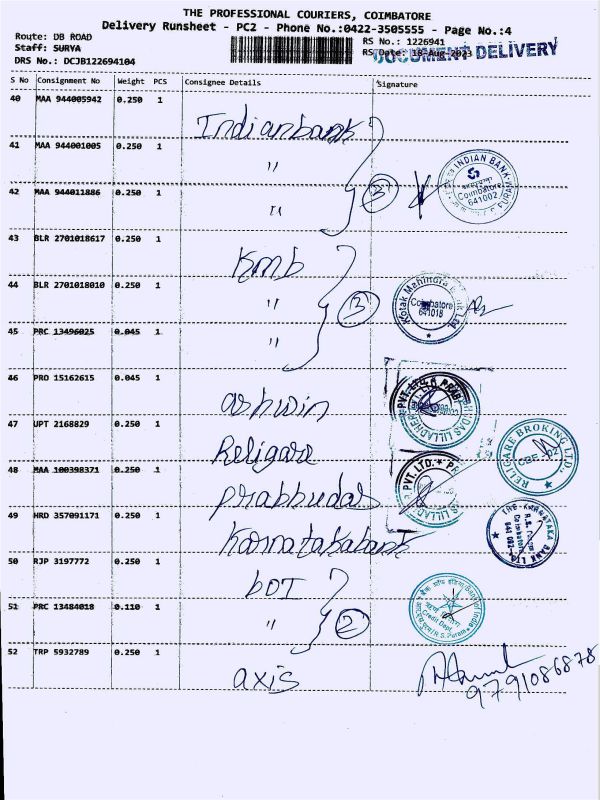 THE PROFESSIONAL COURIERS, COIMBATORE
Delivery Runsheet - PC2 - Phone No.:0422-3505555 - Page No.:4
Route: DB ROAD
Staff: SURYA
DRS No.: DCJB122694104
RS No.: 1226941
RS Date: 18-Aug-2023
DOCUMENT DELIVERY
S No Consignment No Weight PCS Consignee Details Signature
40 MAA 944005942 0.250 1 Indianbank
41 MAA 944001005 0.250 1 "
42 MAA 944011886 0.250 1 " 3
INDIAN BANK
Coimbatore
641002
43 BLR 2701018617 0.250 1 KMB
44 BLR 2701018010 0.250 1 " 3
Kotak Mahindra Bank Ltd.
Coimbatore
641018
45 PRC 13496025 0.045 1 "
46 PRO 15162615 0.045 1 ashwin
47 UPT 2168829 0.250 1 Religare
RELIGARE BROKING LTD.
CBE
48 MAA 100398371 0.250 1 prabhudas
PVT. LTD.
49 HRD 357091171 0.250 1 Karnatakabank
THE KARNATAKA BANK LTD.
R.S. Puram
Coimbatore
641 002
50 RJP 3197772 0.250 1 BOI
51 PRC 13484018 0.110 1 " 2
Bank of India
Credit Dept.
R.S. Puram
52 TRP 5932789 0.250 1 axis
9791086878